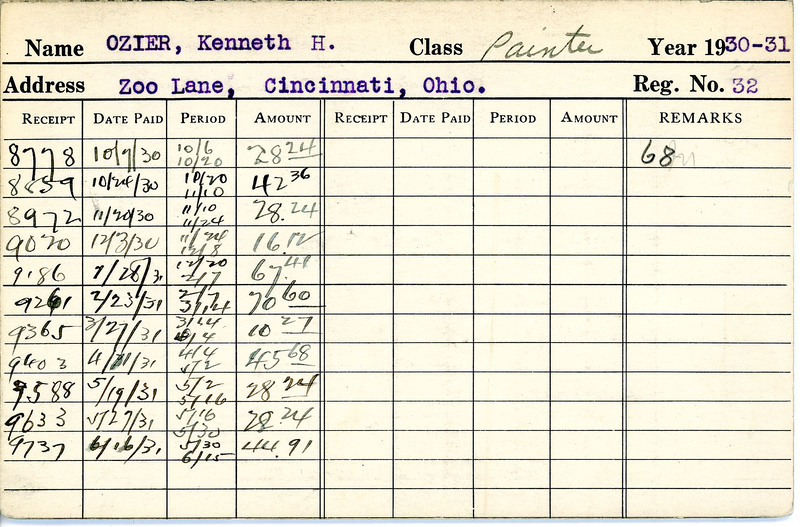 Name OZIER, Kenneth H. Class Painter Year 1930-31
Address Zoo Lane, Cincinnati, Ohio. Reg. No. 32
RECEIPT DATE PAID PERIOD AMOUNT RECEIPT DATE PAID PERIOD AMOUNT REMARKS
8778 10/7/30 10/6 10/20 28 24 68
8859 10/24/30 10/20 11/10 42 36
8972 11/20/30 11/10 11/24 28.24
9020 12/3/30 11/24 12/8 16 12
9186 1/28/31 12/20 2/7 67.41
9261 2/23/31 2/7 3/14 70 60
9365 3/27/31 3/14 4/4 10 27
9403 4/ /31 4/4 5/2 45 68
9588 5/19/31 5/2 5/16 28 24
9633 5/27/31 5/16 5/30 28.24
9737 6/16/31 5/30 6/15 44.91